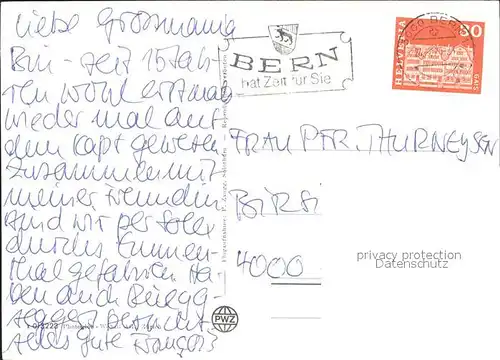 Liebe Grossmama
Bin seit 15 Jah-
ren wohl erstmals
wieder mal auf
dem gewesen
Zusammen mit
meiner Freundin
sind wir per Solex
durchs Emmen-
thal gefahren Ha-
ben auch Rüegg-
segger besucht
alles gute François
BERN
hat Zeit für Sie
3000 BERN
HELVETIA
50
FRAU PFR. THURNEYSEN
BIRSI
4000
privacy protection
Datenschutz
PWZ